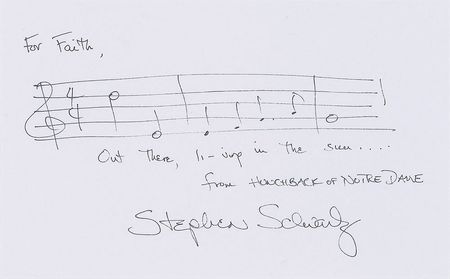 For Faith,
4
4
Out There, li-ving in the sun....
from HUNCHBACK OF NOTRE DAME
Stephen Schwartz